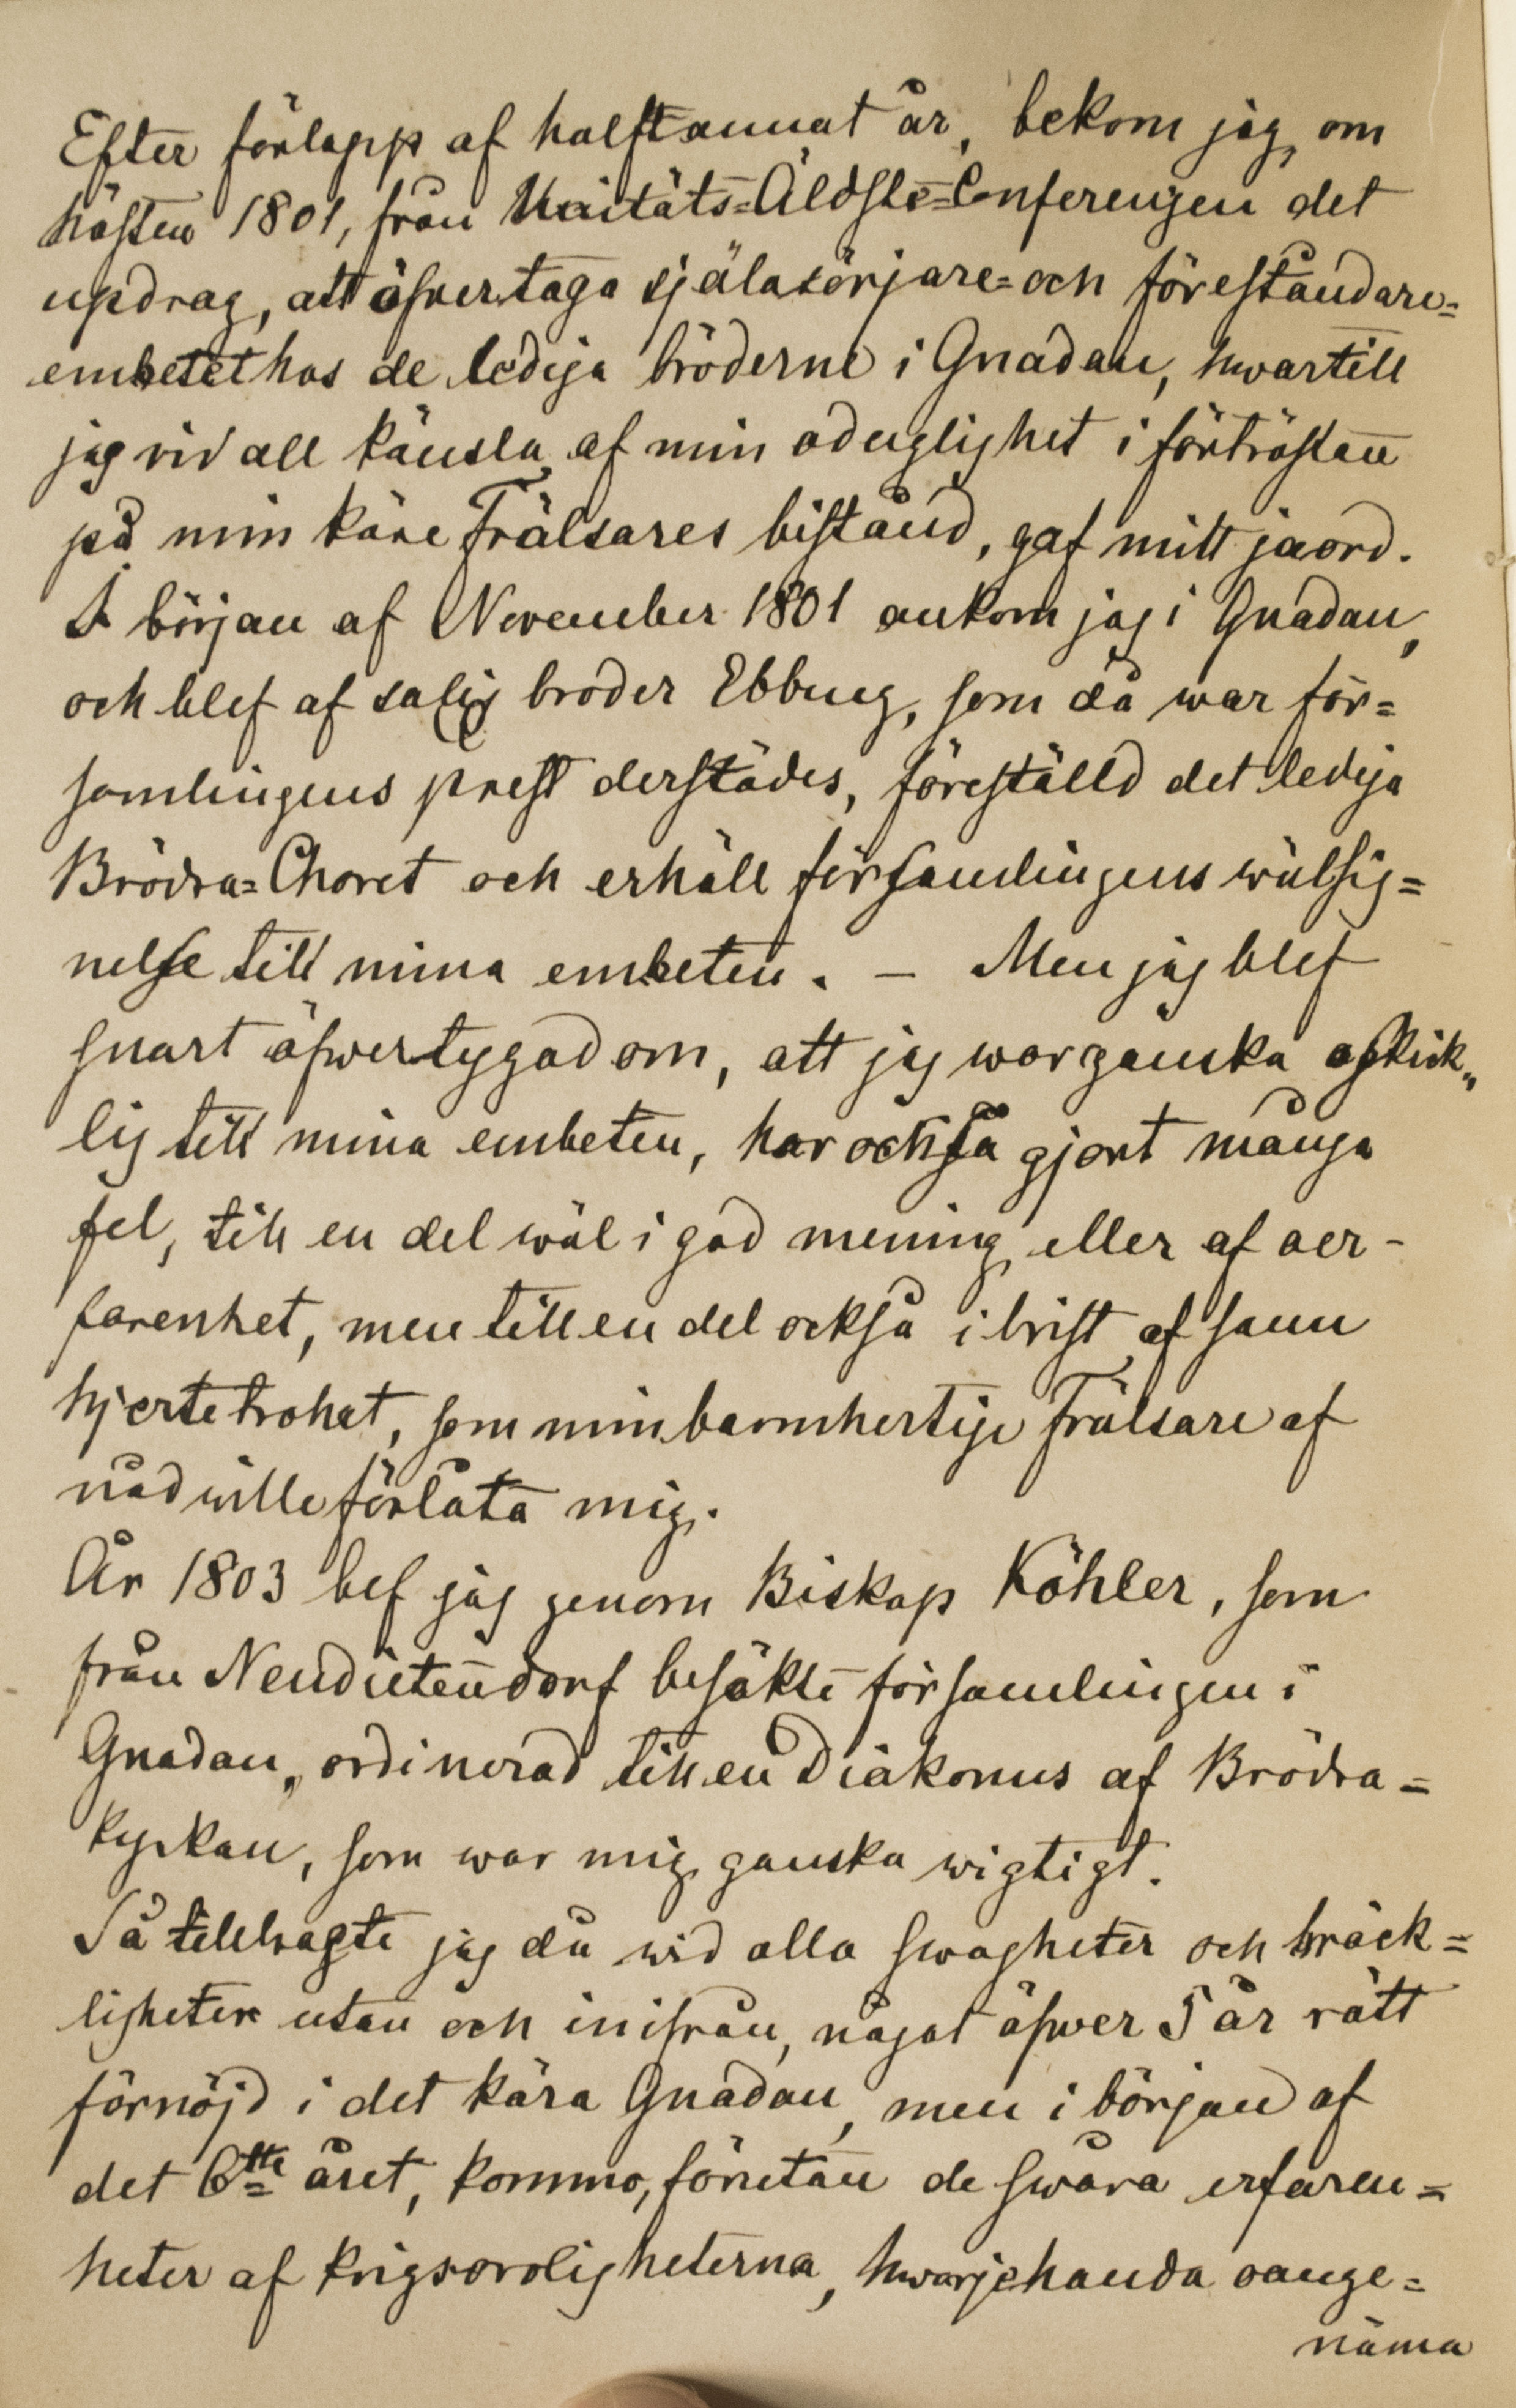 Efter förlopp af halftannat år, bekom jag om
hösten 1801, från Unitäts=Äldste=Conferenzen det
updrag, att öfvertaga själasörjare= och föreståndare=
embetet hos de lediga bröderne i Gnadau, hwartill
jag vid all känsla af min oduglighet i förtröstan
på min käre Frälsares bistånd, gaf mitt jaord.
I början af November 1801 ankom jag i Gnadau,
och blef af salig broder Ebbing, som då war för=
samlingens prest derstädes, föreställd det lediga
Brödra=Choret och erhåll församlingens wälsig=
nelse till mina embeten. — Men jag blef
snart öfwertygad om, att jag war ganska oskick„
lig till mina embeten, har också gjort många
fel, till en del wäl i god mening eller af oer-
farenhet, men till en del också i brist af sann
hjertetrohet, som min barmhertige Frälsare af
nåd wille förlåta mig.
År 1803 bef jag genom Biskop Köhler, som
från Neudietendorf besökte församlingen i
Gnadau, ordinerad till en Diakonus af Brödra=
kyrkan, som war mig ganska wigtigt.
Så tillbragte jag då wid alla swagheter och bräck=
ligheter utan och inifrån, något öfwer 5 år rätt
förnöjd i det kära Gnadau, men i början af
det 6tte året, kommo, förutan de swåra erfaren=
heter af krigsoroligheterna, hwarjehanda oange=
näma